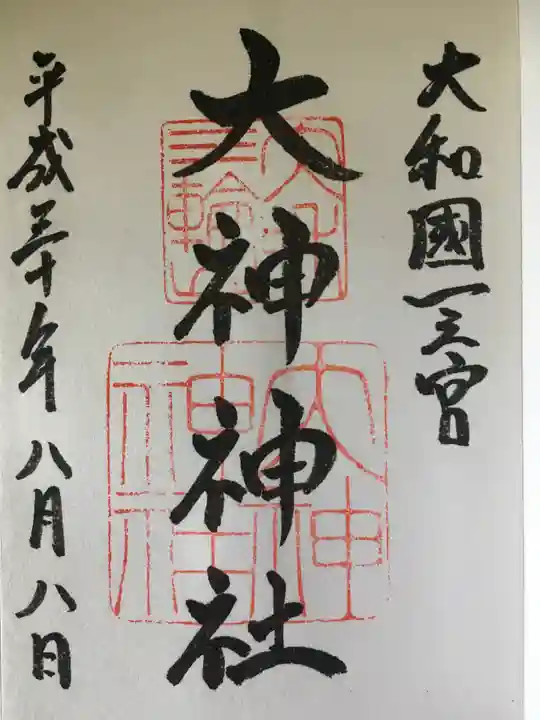 大和國一之宮
大神神社
大神神社
平成三十年八月八日